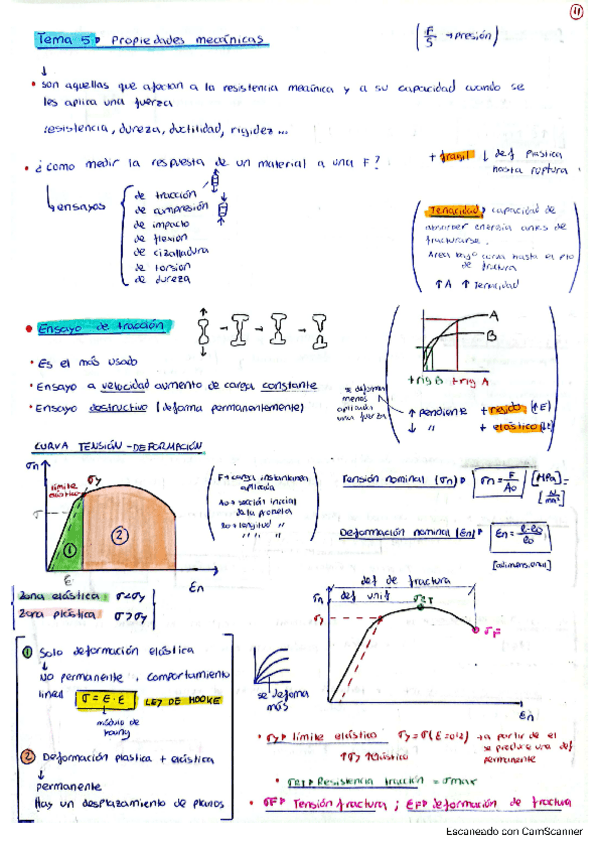 11
Tema 5 Propiedades mecánicas
(F/S → presión)
son aquellas que afectan a la resistencia mecánica y a su capacidad cuando se
les aplica una fuerza
resistencia, dureza, ductilidad, rigidez ...
¿como medir la respuesta de un material a una F?
ensayos
de tracción
de compresión
de impacto
de flexion
de cizalladura
de torsion
de dureza
+ fragil ↓ def plastica
hasta ruptura
Tenacidad capacidad de
absorber energía antes de
fracturarse.
Area bajo curva hasta el pto
de fractura
↑A ↑ Tenacidad
Ensayo de tracción
Es el más usado
Ensayo a velocidad aumento de carga constante
Ensayo destructivo (deforma permanentemente)
A
B
+ rig B + rig A
se deforma
menos
aplicada
una fuerza
↑ pendiente + rígido (↑E)
↓ " + elástico
CURVA TENSIÓN-DEFORMACIÓN
σn
límite
elástico
σy
σ
1
2
ε
εn
F → carga instantanea
aplicada
A0 → sección inicial
de la probeta
l0 → longitud "
Tensión nominal (σn) σn = F/A0 [MPa] =
[N/mm²]
Deformación nominal (εn) εn = l-l0/l0
[adimensional]
Zona elástica: σ<σy
Zona plástica σ>σy
1 Solo deformación elástica
No permanente, comportamiento
lineal σ = E·ε LEY DE HOOKE
módulo de
Young
2 Deformación plastica + elástica
permanente
Hay un desplazamiento de planos
se deforma
más
def de fractura
def unif
σn
σy
σT
σF
εn
σy límite elástico σy = σ(ε=0'2) → a partir de el
se produce una def
permanente
↑σy ↑elástico
σT Resistencia tracción = σmax
σF Tensión fractura ; εF deformación de fractura
Escaneado con CamScanner